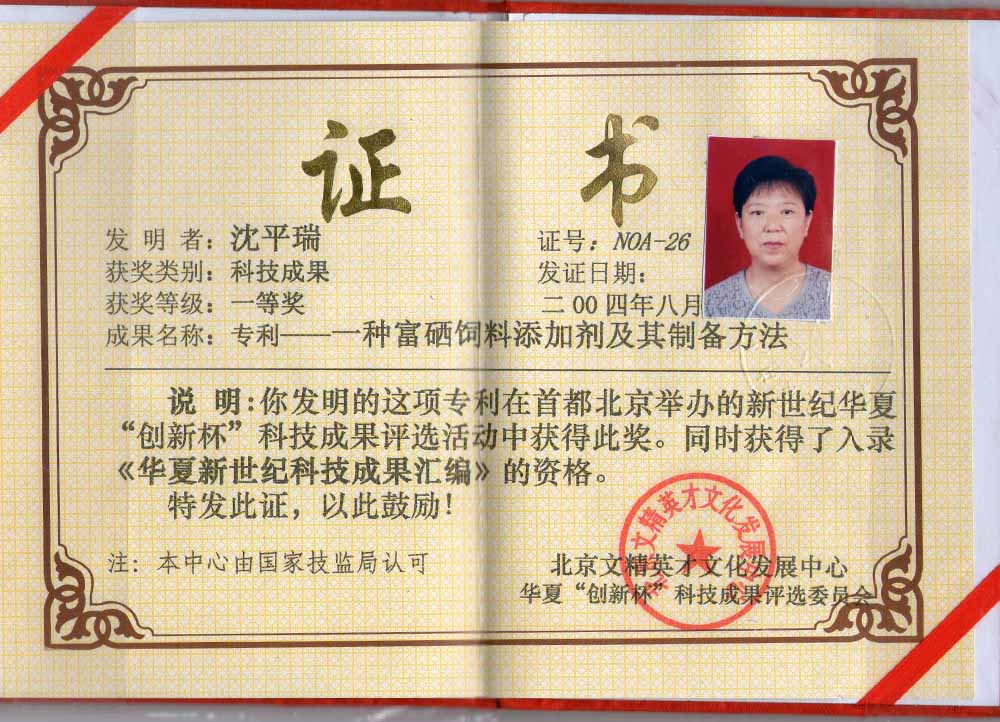 证 书
发 明 者：沈平瑞
获奖类别：科技成果
获奖等级：一等奖
证号：NOA-26
发证日期：
二00四年八月
成果名称：专利——一种富硒饲料添加剂及其制备方法
说 明：你发明的这项专利在首都北京举办的新世纪华夏
“创新杯”科技成果评选活动中获得此奖。同时获得了入录
《华夏新世纪科技成果汇编》的资格。
特发此证，以此鼓励！
注：本中心由国家技监局认可
北京文精英才文化发展中心
华夏“创新杯”科技成果评选委员会
北京文精英才文化发展中心